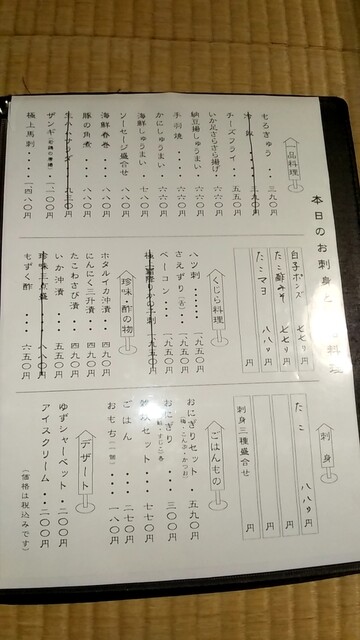 本日のお刺身と 料理
品料理
もろきゅう・・三九〇円
チーズフライ・・五五〇円
いか足さらさら揚げ・・六六〇円
納豆揚しゅうまい・・六六〇円
手羽焼・・・・六六〇円
かにしゅうまい・・六六〇円
海鮮しゅうまい・・七八〇円
ソーセージ盛合せ・・八八〇円
海鮮春巻・・・八八〇円
豚の角煮・・・八八〇円
生ハムサラダ・・九三〇円
極上馬刺・・・一四八〇円
白子ポンズ 七七〇円
たこ酢みそ 七七〇円
たこマヨ 八八〇円
円
くじら料理
ハツ刺・・・・一九五〇円
さえずり(舌)・・一九五〇円
ベーコン・・・一九五〇円
珍味・酢の物
ホタルイカ沖漬・・四九〇円
にんにく三升漬・・四九〇円
たこわさび漬・・四九〇円
いか沖漬・・・五五〇円
珍味三点盛・・八八〇円
もずく酢・・・六五〇円
刺身
たこ 八八〇円
円
円
円
刺身三種盛合せ 円
ごはんもの
おにぎりセット・五九〇円
おにぎり・・・三〇〇円
セット・・七七〇円
ごはん・・・二七〇円
おもち(一個)・・・一八〇円
デザート
ゆずシャーベット・二〇〇円
アイスクリーム・・二〇〇円
(価格は税込みです)